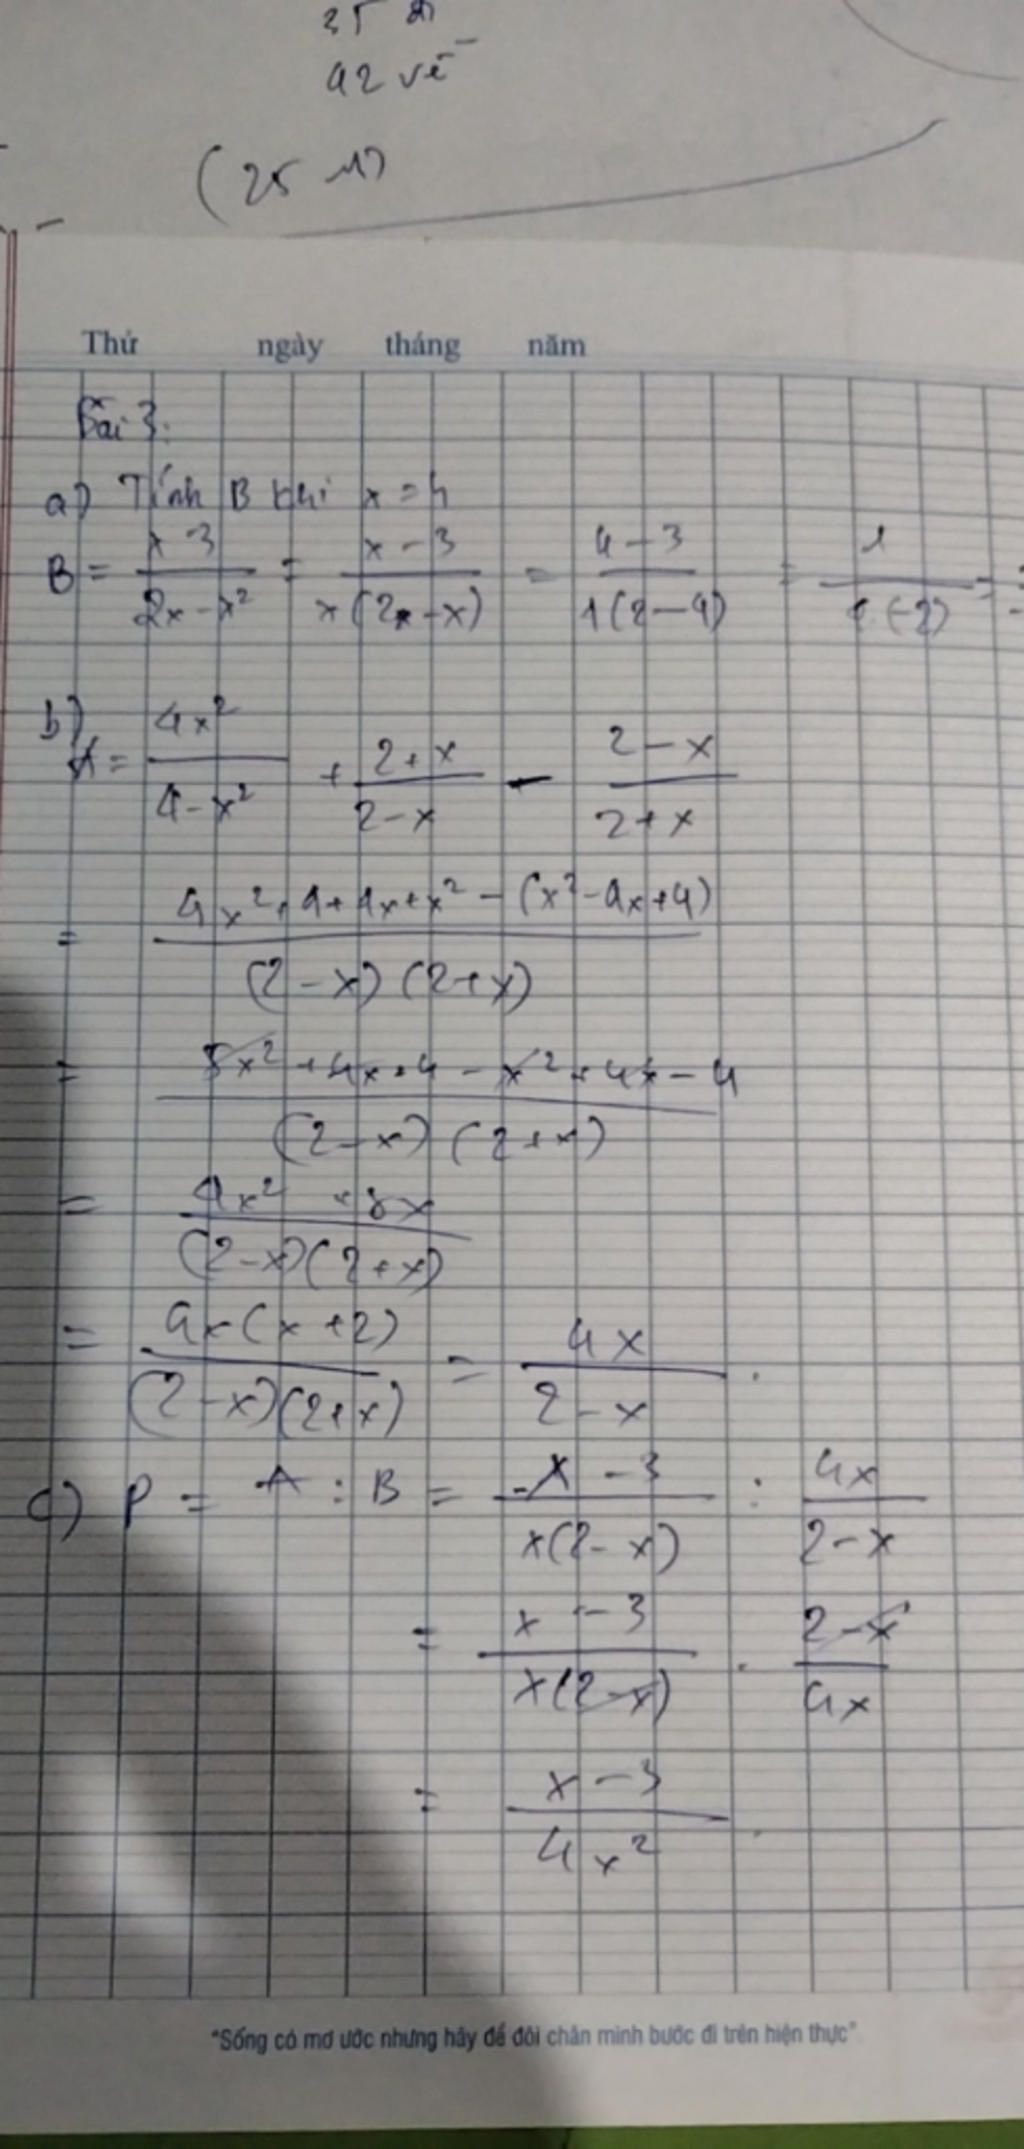 42 vé
(25
Thứ ngày tháng năm
Bài 3:
a) Tính B khi x = 4
B = x-3 / 2x - x² = x - 3 / x(2 - x) = 4 - 3 / 4(2 - 4) = 1 / 4(-2) =
b) A = 4x² / 4 - x² + 2 + x / 2 - x - 2 - x / 2 + x
= 4x² + 4 + 4x + x² - (x² - 4x + 4) / (2 - x) (2 + x)
= 5x² + 4x + 4 - x² + 4x - 4 / (2 - x) (2 + x)
= 4x² + 8x / (2 - x)(2 + x)
= 4x(x + 2) / (2 - x)(2 + x) = 4x / 2 - x .
c) P = A : B = x - 3 / x(2 - x) : 4x / 2 - x
= x - 3 / x(2 - x) . 2 - x / 4x
= x - 3 / 4x² .
"Sống có mơ ước nhưng hãy để đôi chân mình bước đi trên hiện thực"